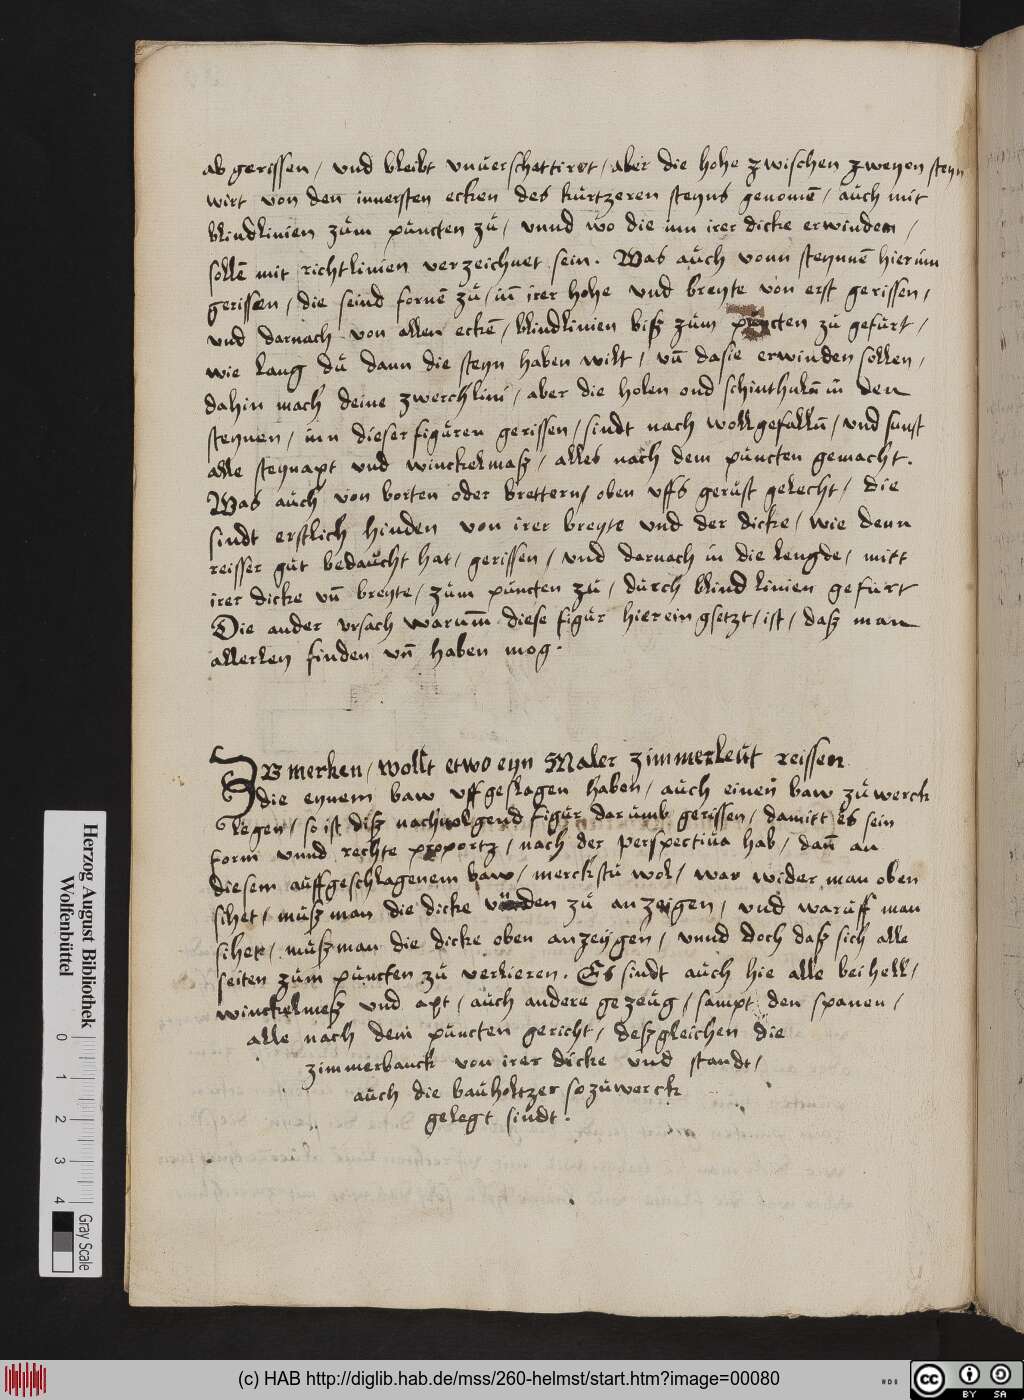 ab gerissen / vnd bleibt vnuerschattiret / aber die hohe zwischen zweyen steyn
wirt von den innersten ecken des kurtzeren steyns genomē / auch mit
blindlinien zum puncten zu / vnnd wo die inn irer dicke erwinden /
sollē mit richtlinien verzeichnet sein. Was auch vonn steynnē hierinn
gerissen / die seind fornē zu / iñ irer hohe vnd breyte von erst gerissen /
vnd darnach von allen eckē / blindlinien bisz zum puncten zu gefurt /
wie lang du dann die steyn haben wilt / vñ da sie erwinden sollen /
dahin mach deine zwerchlini / aber die holen ond in den
steynen / inn dieser figuren gerissen / sindt nach wollgefallñ / vnd sunst
alle steynapt vnd winckelmasz / alles nach dem puncten gemacht.
Was auch von borten oder brettern / oben vffs gerust gelecht / die
sindt erstlich hinden von irer breyte vnd der dicke / wie denn
reisser gut bedaucht hat / gerissen / vnd darnach in die lengde / mitt
irer dicke vñ breyte / zum puncten zu / durch blind linien gefurt
Die ander vrsach warum̄ diese figur hierein gsetzt / ist / dasz man
allerley finden vñ haben mog.
ZV merken / wollt etwo eyn Maler zimmerleut reissen
die eynem baw vffgeslagen haben / auch einen baw zuwerck
legen / so ist disz nachuolgend figur darumb gerissen / damitt es sein
form vnnd rechte proportz / nach der perspectiua hab / dañ an
diesem auffgeschlagenem baw / merckstu wol / war wider man oben
sihet / musz man die dicke vnden zu anzeigen / vnd waruff man
sihet / musz man die dicke oben anzeygen / vnnd doch dasz sich alle
seiten zum puncten zu verlieren. Es sindt auch hie alle beihell /
winckelmesz vnd apt / auch andere gezeug / sampt den spanen /
alle nach dem puncten gericht / deszgleichen die
zimmerbanck von irer dicke vnd standt /
auch die bauholtzer so zuwerck
gelegt sindt.
Herzog August Bibliothek
Wolfenbüttel
0 1 2 3 4
Gray Scale
(c) HAB http://diglib.hab.de/mss/260-helmst/start.htm?image=00080
HAB
cc BY SA